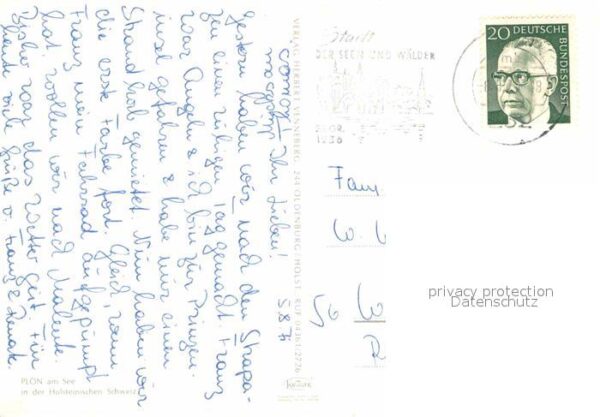 5.8.71
Ihr Lieben!
Gestern haben wir nach den Strapa-
zen einen ruhigen Tag gemacht. Franz
war Angeln & ich bin zur Prinzen-
insel gefahren & habe mir einen
Strand korb gemietet. Nun haben wir
die erste Farbe fort. Gleich, wenn
Franz mein Fahrrad aufgepumpt
hat, wollen wir nach Malente.
Bisher war das Wetter gut. Für
heute viele
Grüße v. Franz & Renate.
PLÖN am See
in der Holsteinischen Schweiz
VERLAG HERBERT 244 OLDENBURG/HOLST. RUF 04361-2726
DER SEEN UND WÄLDER
20
DEUTSCHE
BUNDESPOST
Fam
W.
56
privacy protection
Datenschutz